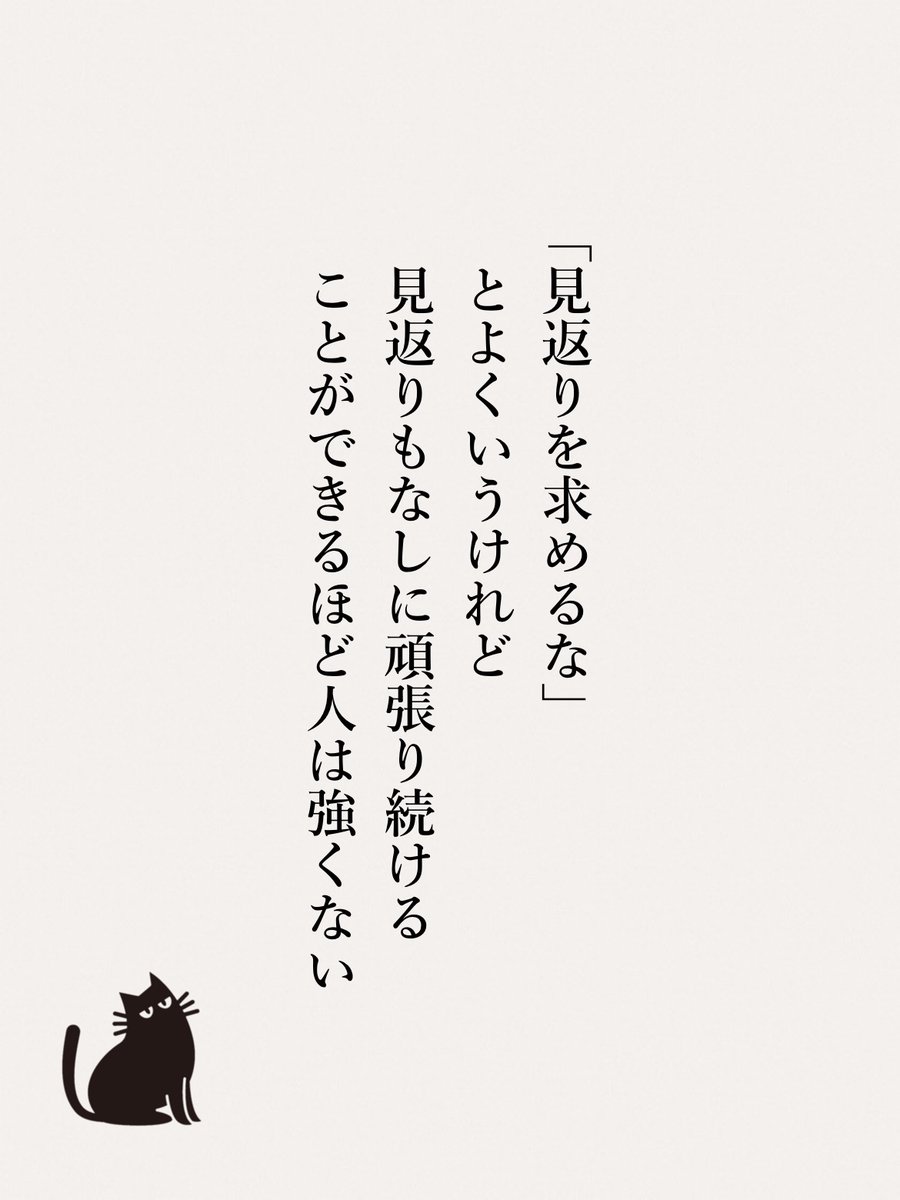 「見返りを求めるな」
とよくいうけれど
見返りもなしに頑張り続ける
ことができるほど人は強くない